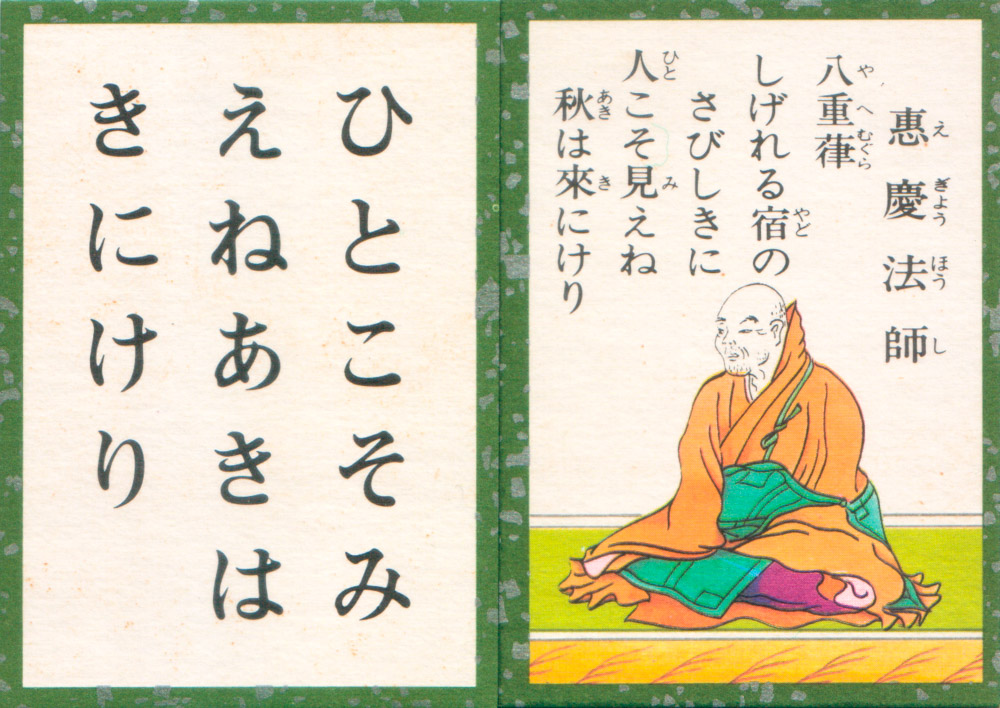 惠慶法師
八重葎
しげれる宿の
さびしきに
人こそ見えね
秋は來にけり
ひとこそみ
えねあきは
きにけり